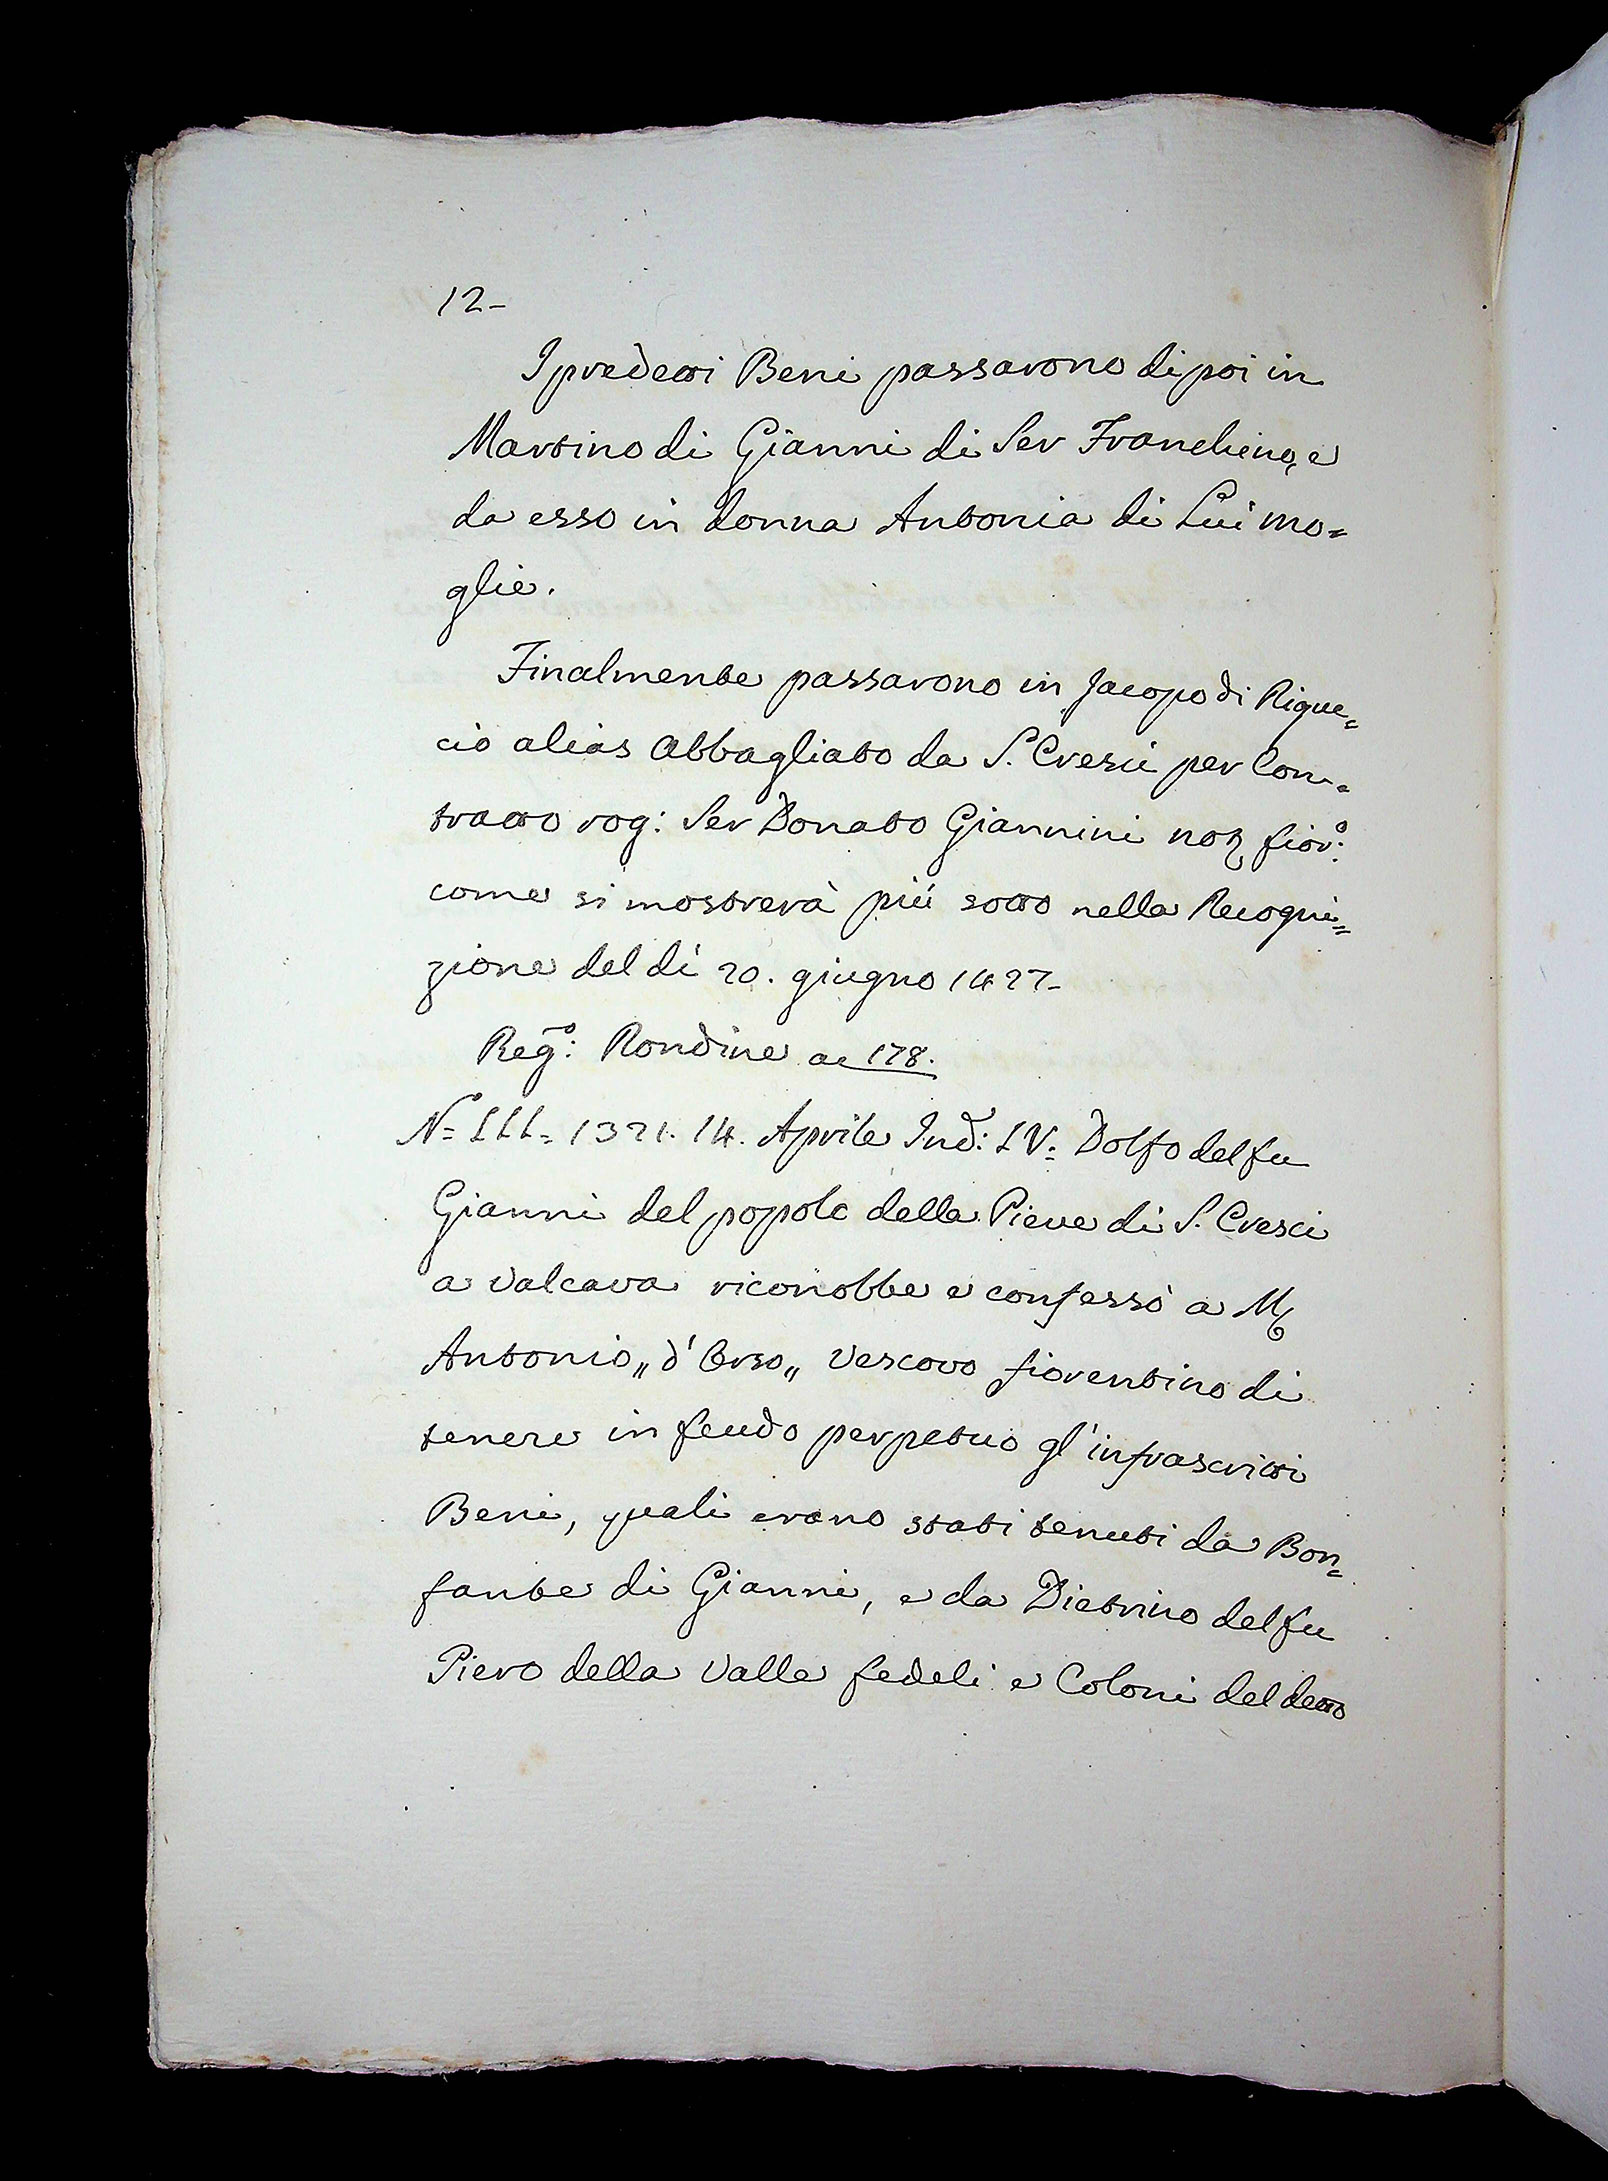 12-
I predetti Beni passarono di poi in
Martino di Gianni di Ser Franchino, e
da esso in donna Antonia di Lui mo=
glie.
Finalmente passarono in Jacopo di Rigue=
cio alias Abbagliato da S. Cresci per Con=
tratto rog: Ser Donato Giannini not fior:o
come si mostrerà più sotto nella Recogni=
zione del dì 20. giugno 1427-
Reg:o Rondine a c 178.
N= III= 1321. 14. Aprile Ind: IV= Dolfo del fu
Gianni del popolo della Pieve di S. Cresci
a Valcava riconobbe e confessò a M
Antonio „ d'Orso „ Vescovo fiorentino di
tenere in feudo perpetuo gl'infrascritti
Beni, quali erano stati tenuti da Bon=
fante di Gianni, e da Dietrino del fu
Piero della Valle fedeli e Coloni del detto